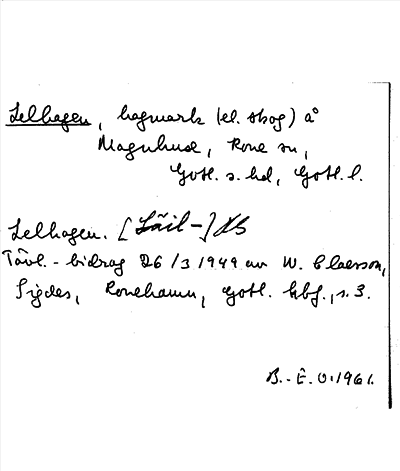 Lelhagen, hagmark (el. skog) å
Magnhuse, Rone sn,
Gotl. s. hd, Gotl. l.
Lelhagen. [Läil-]
Tävl.-bidrag 26/3 1949 av W. Claeson,
Sigdes, Ronehamn, Gotl. hbf., s. 3.
B.-E. O. 1961.